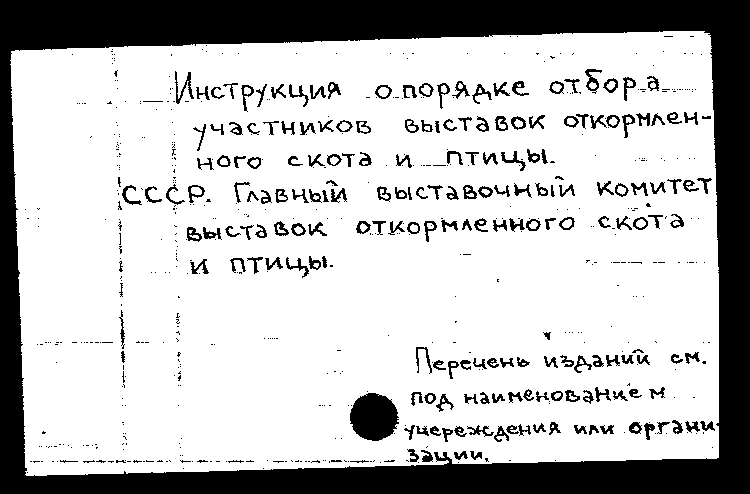 Инструкция о порядке отбора
участников выставок откормлен-
ного скота и птицы.
СССР. Главный выставочный комитет
выставок откормленного скота
и птицы.
Перечень изданий см.
под наименованием
учереждения или органи-
зации.